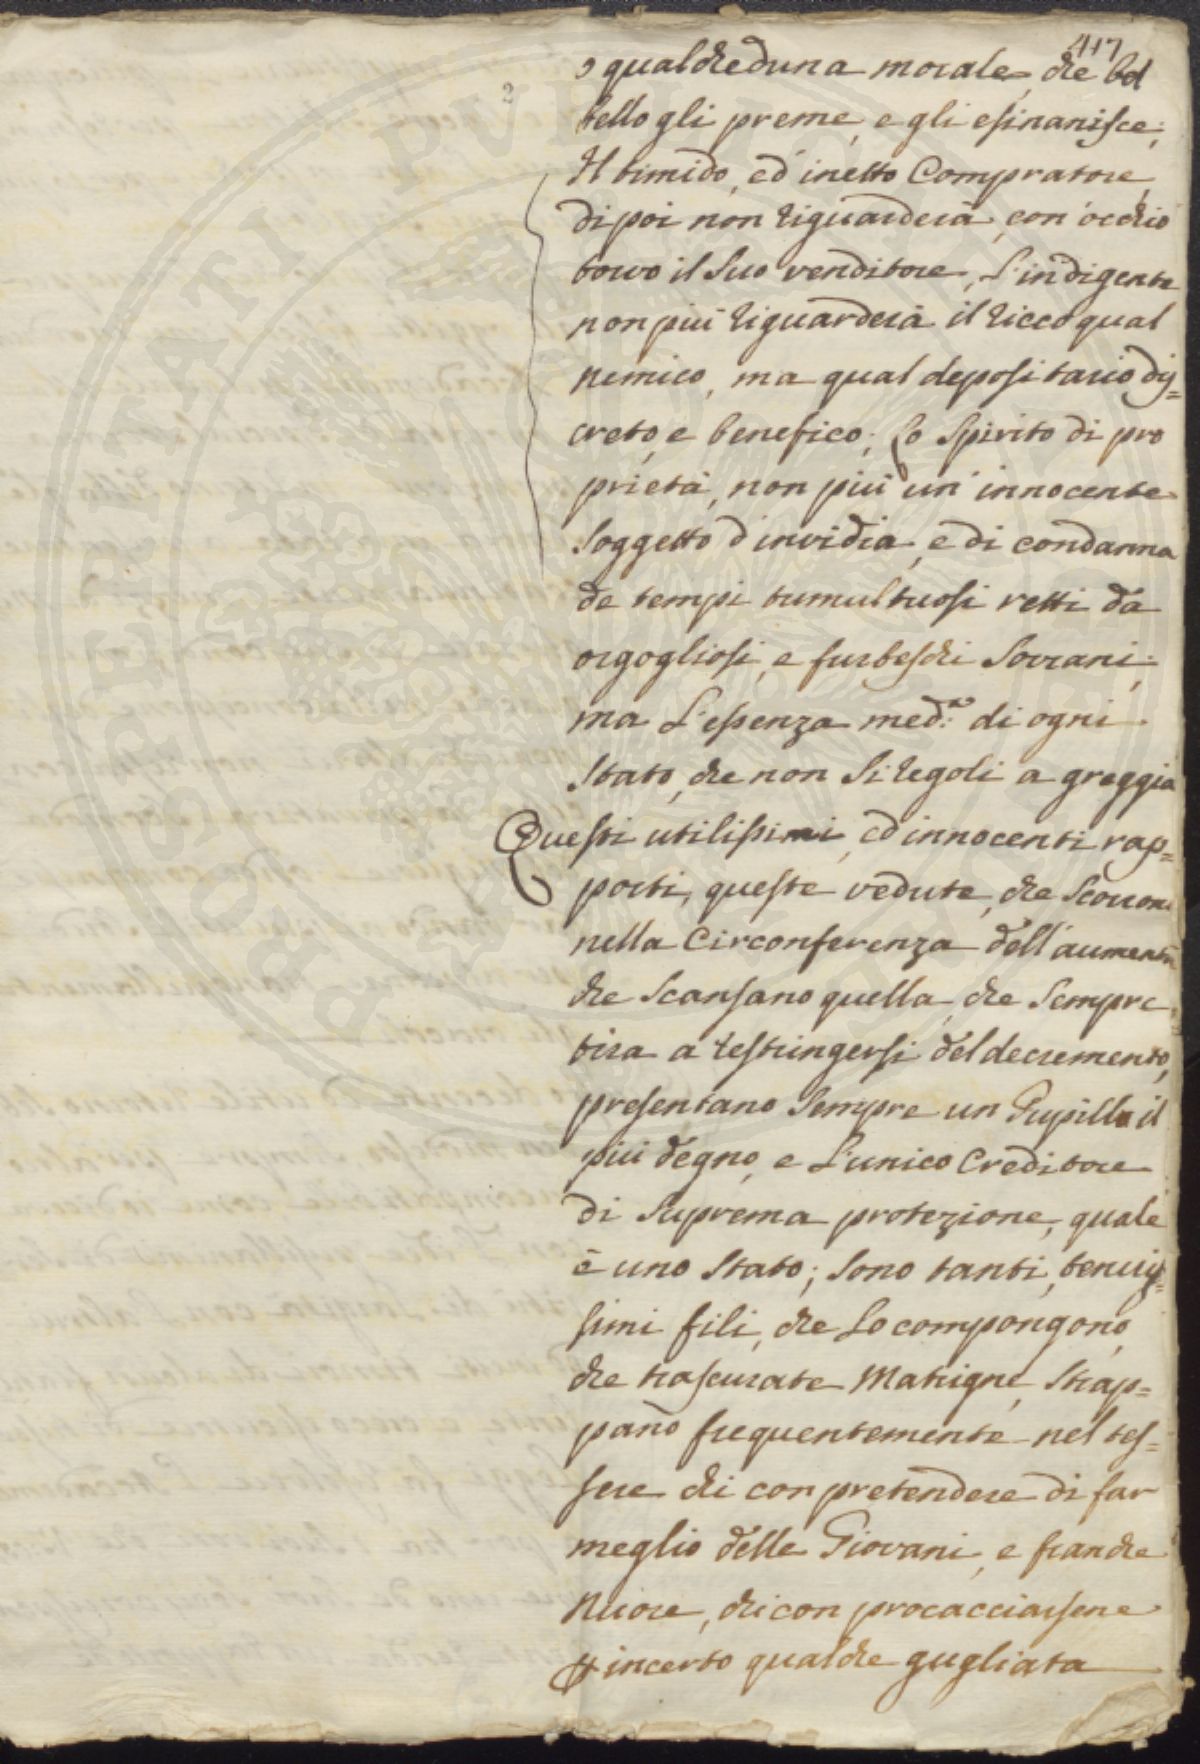 417
2
o qualcheduna morale, che bel
bello gli preme, e gli esinanisce;
Il timido, ed inetto Compratore,
di poi non riguarderà, con occhio
torvo il suo venditore, L'indigente
non più riguarderà il ricco qual
nemico, ma qual depositario dis=
creto, e benefico; Lo Spirito di pro
prietà, non più un innocente
soggetto d'invidia, e di condanna
de tempi tumultuosi retti da
orgogliosi, e furbeschi Sovrani;
ma L'essenza med.ma di ogni
Stato, che non si regoli a greggia
Questi utilissimi, ed innocenti rap=
porti, queste vedute, che scorron
nella Circonferenza dell'aumento
che scansano quella, che sempre
tira a restringersi del decremento,
presentano sempre un Pupillo il
più degno, e L'unico Creditore
di suprema protezione, quale
è uno Stato; sono tanti, tenuis=
simi fili, che Lo compongono,
che trascurate Matrigne, strap=
pano frequentemente nel tes=
sere chi con pretendere di far
meglio delle Giovani, e franche
Nuore, chi con procacciarsene
incerto qualche gugliata
PROSPERITATI PVBLICAE